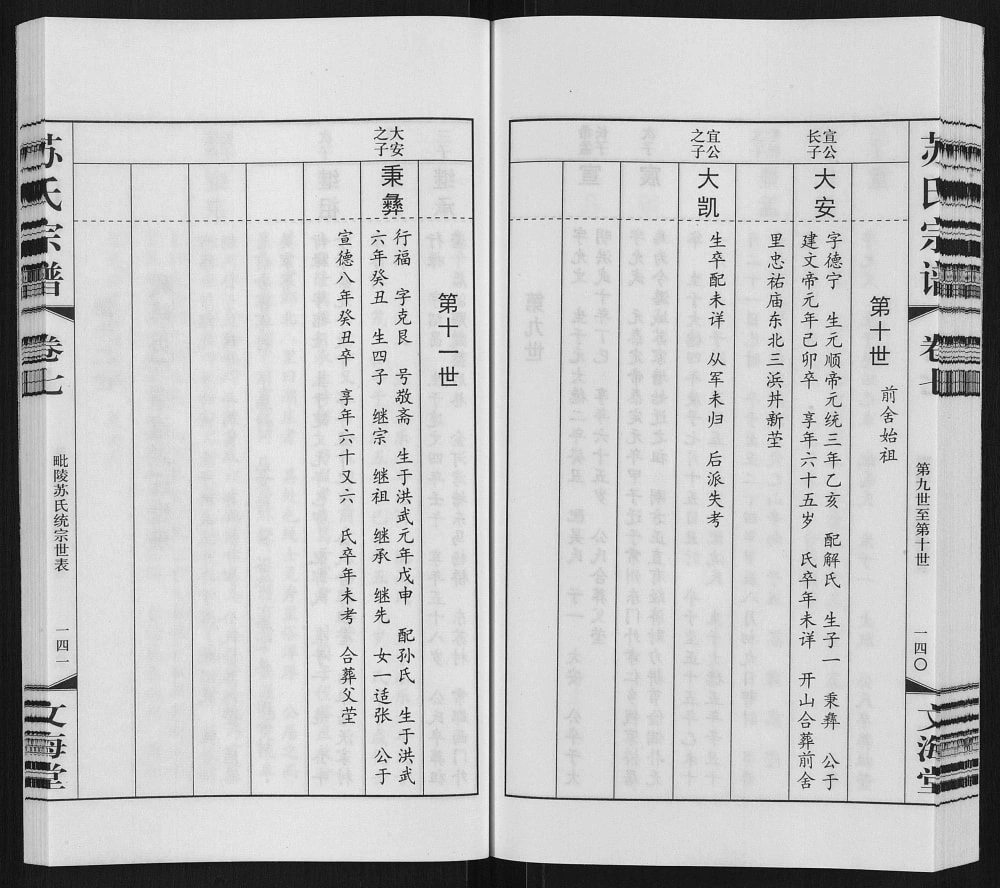 苏氏宗谱
卷七
第九世至第十世
一四〇
文海堂
第十世
前舍始祖
宣公
长子
大安
字德宁 生元顺帝元统三年乙亥 配解氏 生子一 秉彝 公于
建文帝元年己卯卒 享年六十五岁 氏卒年未详 开山合葬前舍
里忠祐庙东北三浜丼新茔
宜公
之子
大凯
生卒配未详 从军未归 后派失考
第十一世
大安
之子
秉彝
行福 字克艮 号敬斋 生于洪武元年戊申 配孙氏 生于洪武
六年癸丑 生四子 继宗 继祖 继承 继先 女一适张 公于
宣德八年癸丑卒 享年六十又六 氏卒年未考 合葬父茔
苏氏宗谱
卷七
毗陵苏氏统宗世表
一四一
文海堂